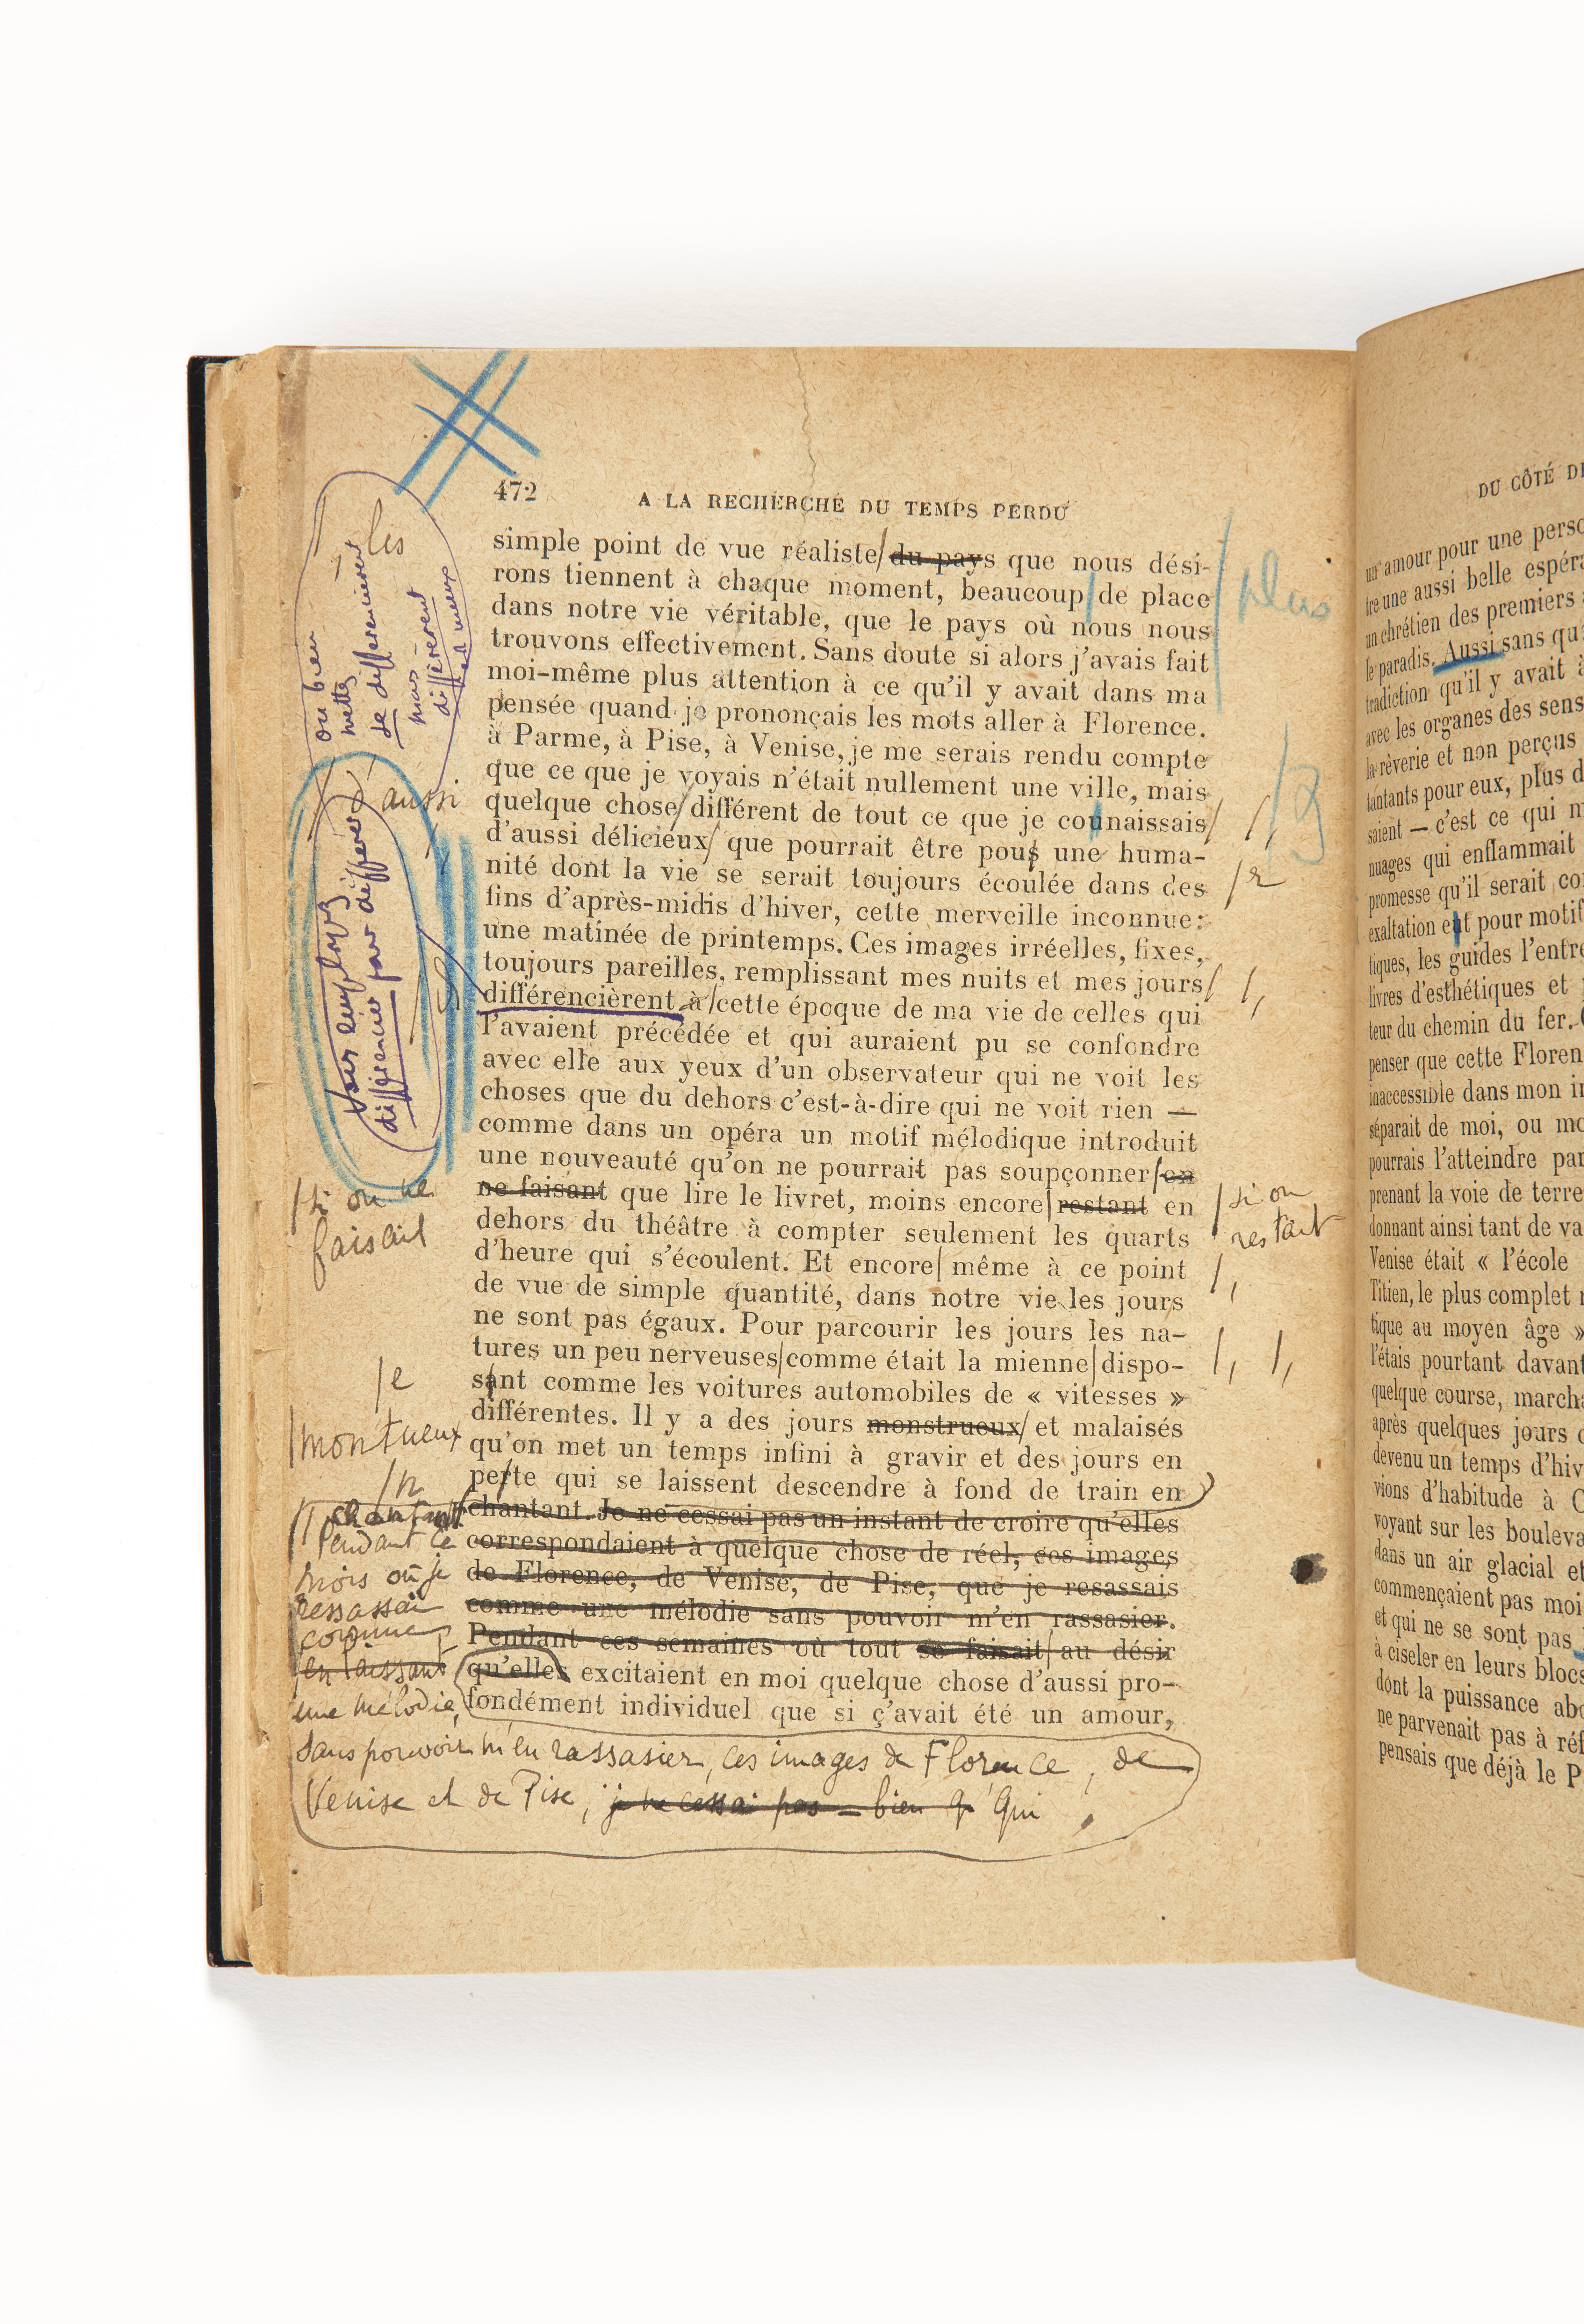 472
A LA RECHERCHE DU TEMPS PERDU
simple point de vue réaliste du pays que nous dési-
rons tiennent à chaque moment, beaucoup de place
dans notre vie véritable, que le pays où nous nous
trouvons effectivement. Sans doute si alors j'avais fait
moi-même plus attention à ce qu'il y avait dans ma
pensée quand je prononçais les mots aller à Florence.
à Parme, à Pise, à Venise, je me serais rendu compte
que ce que je voyais n'était nullement une ville, mais
quelque chose différent de tout ce que je connaissais
d'aussi délicieux que pourrait être pous une huma-
nité dont la vie se serait toujours écoulée dans des
fins d'après-midis d'hiver, cette merveille inconnue:
une matinée de printemps. Ces images irréelles, fixes,
toujours pareilles, remplissant mes nuits et mes jours
différencièrent à cette époque de ma vie de celles qui
l'avaient précédée et qui auraient pu se confondre
avec elle aux yeux d'un observateur qui ne voit les
choses que du dehors c'est-à-dire qui ne voit rien —
comme dans un opéra un motif mélodique introduit
une nouveauté qu'on ne pourrait pas soupçonner en
ne faisant que lire le livret, moins encore restant en
dehors du théâtre à compter seulement les quarts
d'heure qui s'écoulent. Et encore même à ce point
de vue de simple quantité, dans notre vie les jours
ne sont pas égaux. Pour parcourir les jours les na-
tures un peu nerveuses comme était la mienne dispo-
sant comme les voitures automobiles de « vitesses »
différentes. Il y a des jours monstrueux et malaisés
qu'on met un temps infini à gravir et des jours en
perte qui se laissent descendre à fond de train en
chantant. Je ne cessai pas un instant de croire qu'elles
correspondaient à quelque chose de réel, ces images
de Florence, de Venise, de Pise, que je resassais
comme une mélodie sans pouvoir m'en rassasier.
Pendant ces semaines où tout se faisait au désir
qu'elles excitaient en moi quelque chose d'aussi pro-
fondément individuel que si ç'avait été un amour,
les
ou bien
mettez
se différencièrent
mais
différèrent
aussi
Vous employez
différencier pour différer
si on ne
faisait
e
montueux
n
chantant
Pendant ce
mois où je
ressassai
comme
une mélodie,
sans pouvoir m'en rassasier, ces images de Florence, de
Venise et de Pise, je ne cessai pas — bien q qui
plus
r
si on
restait
DU CÔTÉ DE
un amour pour une perso
tre une aussi belle espéra
un chrétien des premiers
le paradis. Aussi sans qu
tradiction qu'il y avait à
avec les organes des sens
la rêverie et non perçus
tantants pour eux, plus d
saient — c'est ce qui m
nuages qui enflammait
promesse qu'il serait co
exaltation eut pour motif
tiques, les guides l'entre
livres d'esthétiques et
teur du chemin du fer.
penser que cette Floren
inaccessible dans mon i
séparait de moi, ou mo
pourrais l'atteindre par
prenant la voie de terre
donnant ainsi tant de va
Venise était « l'école
Titien, le plus complet
tique au moyen âge »
l'étais pourtant davant
quelque course, marcha
après quelques jours
devenu un temps d'hiv
vions d'habitude à C
voyant sur les bouleva
dans un air glacial et
commençaient pas moi
et qui ne se sont pas
à ciseler en leurs blocs
dont la puissance abo
ne parvenait pas à réf
pensais que déjà le P